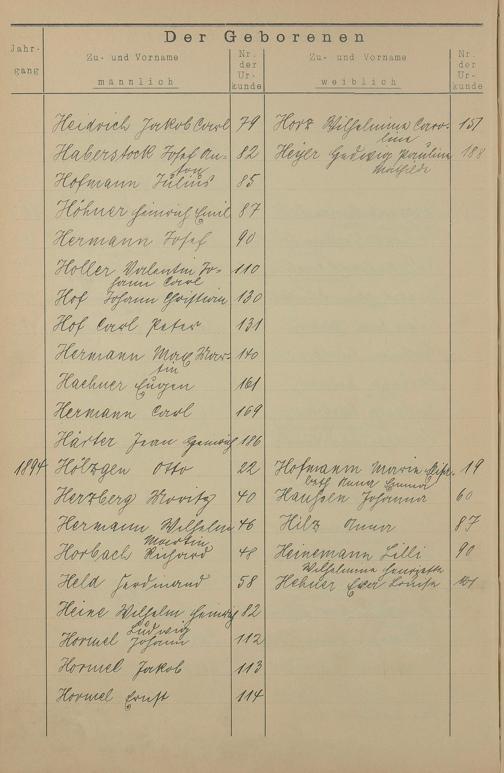 Der Geborenen
Jahr-
gang
Zu- und Vorname
männlich
Nr.
der
Ur-
kunde
Zu- und Vorname
weiblich
Nr.
der
Ur-
kunde
Heidrich Jakob Carl 79 Horz Wilhelmine Caro- 157
line
Haberstock Josef An- 82 Heyer Hedwig Pauline 188
ton Mathilde
Hofmann Julius 85
Höhner Heinrich Emil 87
Hermann Josef 90
Holler Valentin Jo- 110
hann Carl
Hof Johann Christian 130
Hof Carl Peter 131
Hermann Max Mar- 140
tin
Haehner Eugen 161
Hermann Carl 169
Härter Jean Heinrich 186
1894 Hölzgen Otto 22 Hofmann Marie Elisa- 19
beth Anna Emma
Herzberg Moritz 40 Johanna 60
Hermann Wilhelm 46 Hilz Anna 87
Martin
Horbach Richard 48 Heinemann Lilli 90
Wilhelmine Henriette
Held Ferdinand 58 Hehner Eva Louise 101
Heine Wilhelm Heinrich 82
Ludwig
Hormel Johann 112
Hormel Jakob 113
Hormel Ernst 114